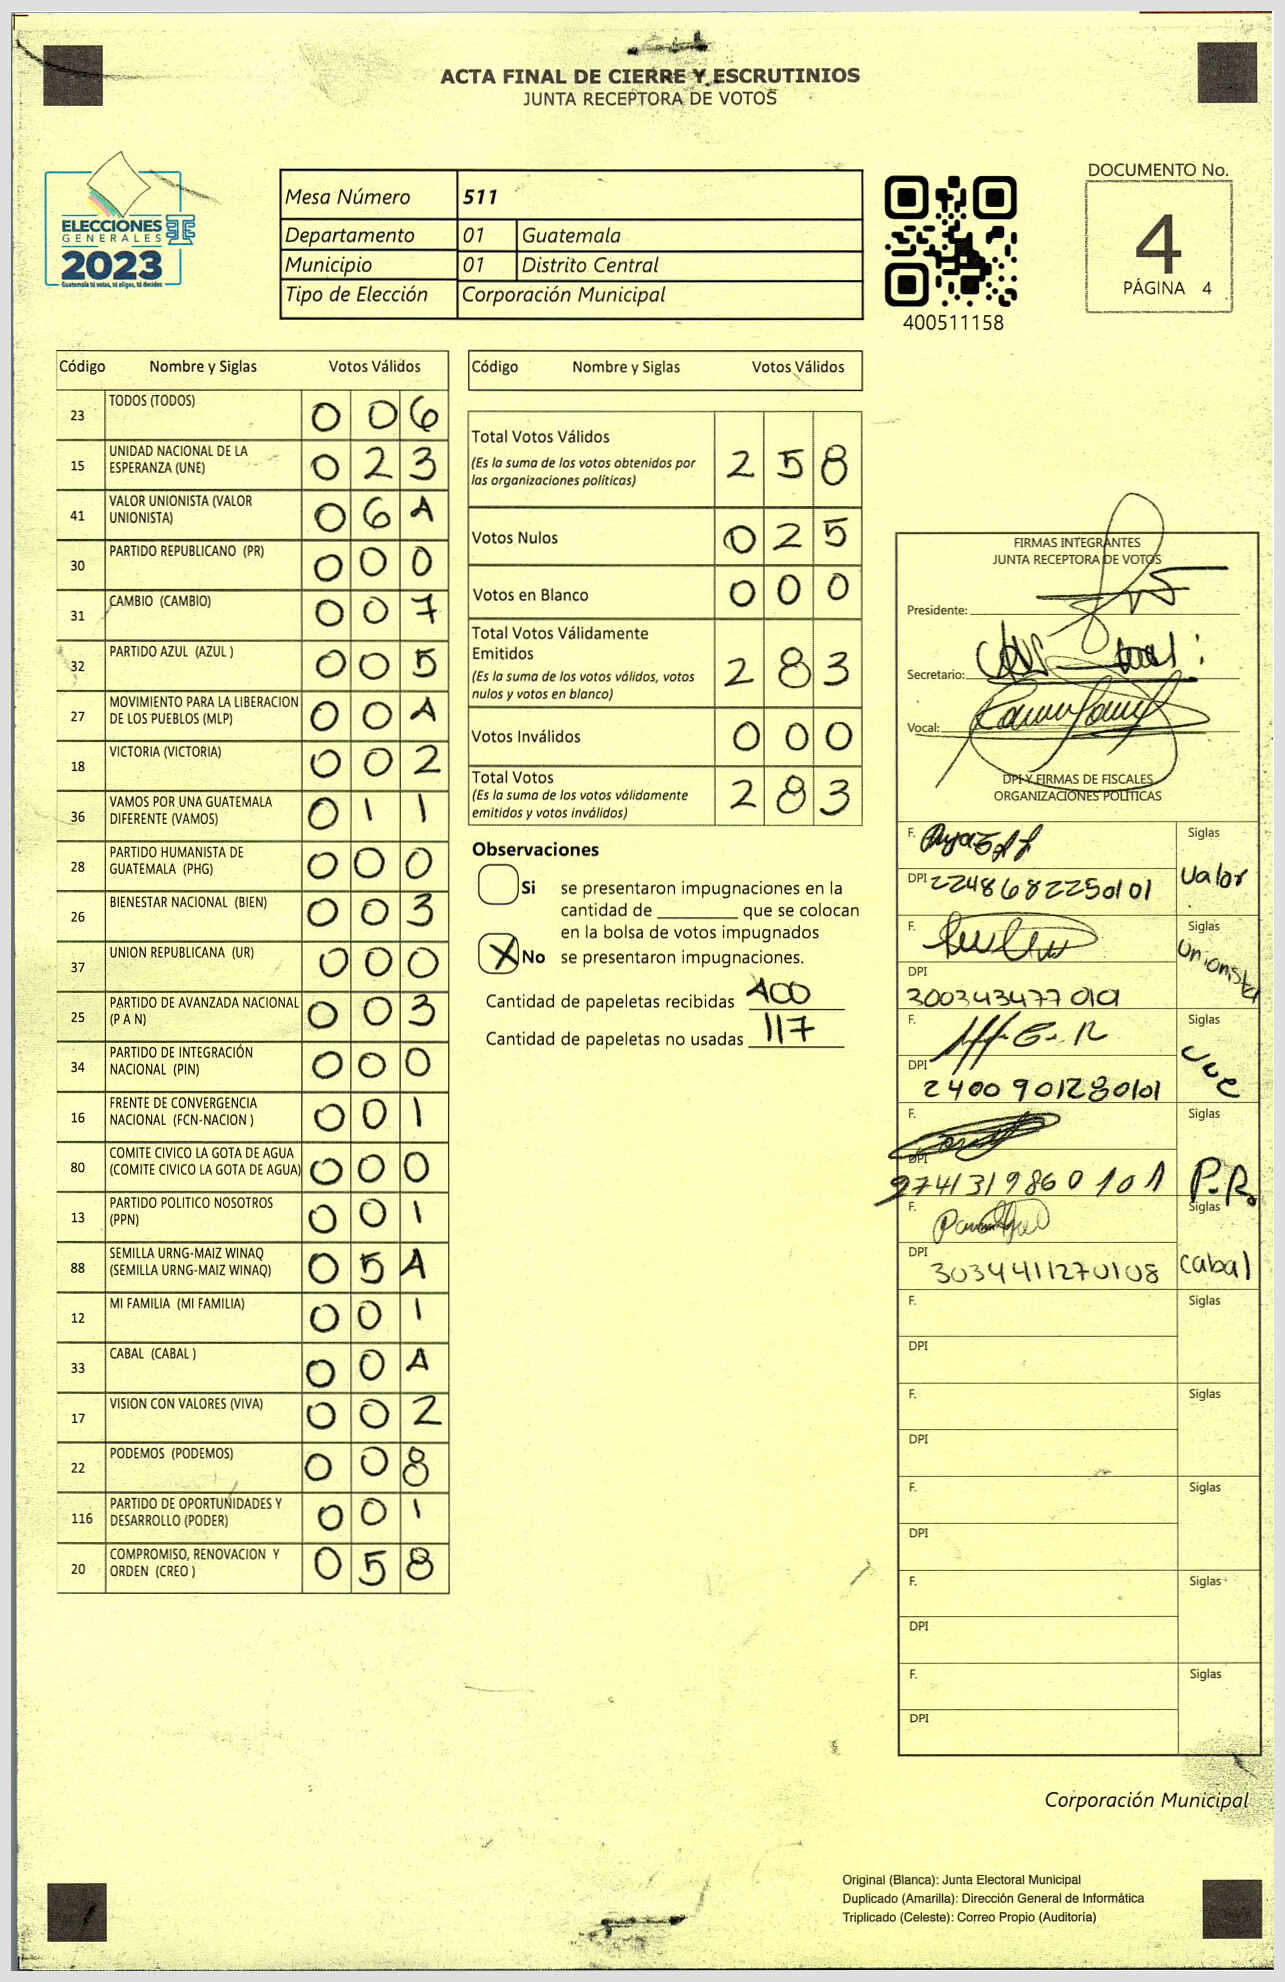 ACTA FINAL DE CIERRE Y ESCRUTINIOS
JUNTA RECEPTORA DE VOTOS
ELECCIONES
GENERALES
2023
Guatemala tú votas, tú eliges, tú decides
Mesa Número 511
Departamento 01 Guatemala
Municipio 01 Distrito Central
Tipo de Elección Corporación Municipal
400511158
DOCUMENTO No.
4
PÁGINA 4
Código Nombre y Siglas Votos Válidos
23 TODOS (TODOS) 0 0 6
15 UNIDAD NACIONAL DE LA
ESPERANZA (UNE) 0 2 3
41 VALOR UNIONISTA (VALOR
UNIONISTA) 0 6 4
30 PARTIDO REPUBLICANO (PR) 0 0 0
31 CAMBIO (CAMBIO) 0 0 7
32 PARTIDO AZUL (AZUL ) 0 0 5
27 MOVIMIENTO PARA LA LIBERACION
DE LOS PUEBLOS (MLP) 0 0 4
18 VICTORIA (VICTORIA) 0 0 2
36 VAMOS POR UNA GUATEMALA
DIFERENTE (VAMOS) 0 1 1
28 PARTIDO HUMANISTA DE
GUATEMALA (PHG) 0 0 0
26 BIENESTAR NACIONAL (BIEN) 0 0 3
37 UNION REPUBLICANA (UR) 0 0 0
25 PARTIDO DE AVANZADA NACIONAL
(P A N) 0 0 3
34 PARTIDO DE INTEGRACIÓN
NACIONAL (PIN) 0 0 0
16 FRENTE DE CONVERGENCIA
NACIONAL (FCN-NACION ) 0 0 1
80 COMITE CIVICO LA GOTA DE AGUA
(COMITE CIVICO LA GOTA DE AGUA) 0 0 0
13 PARTIDO POLITICO NOSOTROS
(PPN) 0 0 1
88 SEMILLA URNG-MAIZ WINAQ
(SEMILLA URNG-MAIZ WINAQ) 0 5 4
12 MI FAMILIA (MI FAMILIA) 0 0 1
33 CABAL (CABAL ) 0 0 4
17 VISION CON VALORES (VIVA) 0 0 2
22 PODEMOS (PODEMOS) 0 0 8
116 PARTIDO DE OPORTUNIDADES Y
DESARROLLO (PODER) 0 0 1
20 COMPROMISO, RENOVACION Y
ORDEN (CREO ) 0 5 8
Código Nombre y Siglas Votos Válidos
Total Votos Válidos
(Es la suma de los votos obtenidos por
las organizaciones políticas) 2 5 8
Votos Nulos 0 2 5
Votos en Blanco 0 0 0
Total Votos Válidamente
Emitidos
(Es la suma de los votos válidos, votos
nulos y votos en blanco) 2 8 3
Votos Inválidos 0 0 0
Total Votos
(Es la suma de los votos válidamente
emitidos y votos inválidos) 2 8 3
Observaciones
Si se presentaron impugnaciones en la
cantidad de ________ que se colocan
en la bolsa de votos impugnados
X No se presentaron impugnaciones.
Cantidad de papeletas recibidas 400
Cantidad de papeletas no usadas 117
FIRMAS INTEGRANTES
JUNTA RECEPTORA DE VOTOS
Presidente:
Secretario:
Vocal:
DPI Y FIRMAS DE FISCALES
ORGANIZACIONES POLÍTICAS
F. Siglas
DPI 2248682250101 Valor
F. Siglas
DPI Unionista
300343477 0101
F. Siglas
DPI une
2400 901280101
F. Siglas
DPI
2741319860101 P.R.
F. Siglas
DPI cabal
3034411270108
F. Siglas
DPI
F. Siglas
DPI
F. Siglas
DPI
F. Siglas
DPI
F. Siglas
DPI
Corporación Municipal
Original (Blanca): Junta Electoral Municipal
Duplicado (Amarilla): Dirección General de Informática
Triplicado (Celeste): Correo Propio (Auditoría)